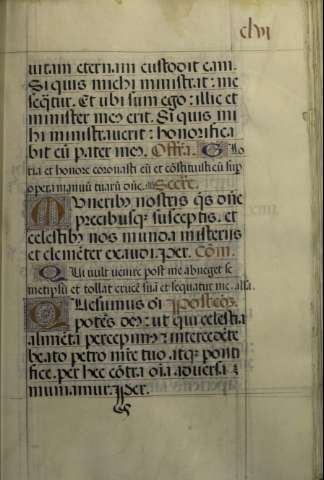 clvi
uitam eternam custodit eam.
Si quis michi ministrat: me
seqͥtur. Et ubi sum ego: illic et
minister meꝰ erit. Si quis mi
hi ministrauerit: honorifica
bit eū pater meꝰ. Offͫa. Glo
ria et honore coronasti eū et cōstituisti eū sup
opera manuū tuarū dn̄e. Secrͭe.
Muneribꝰ nostris q̄s dn̄e
precibusqꝫ susceptis. et
celestibꝰ nos munda misteriis
et clemēter exaudi. Per. Cōm̄.
Qui uult uenire post me abneget se
metipsū et tollat crucē suā et sequatur me. alla.
Quesumus oī Postcōꝫ.
potēs deꝰ: ut qui celestia
alimēta percepimꝰ: intercedēte
beato petro mr̄e tuo. atqꝫ ponti
fice. per hec cōtra oīa aduersa
muniamur. Per.